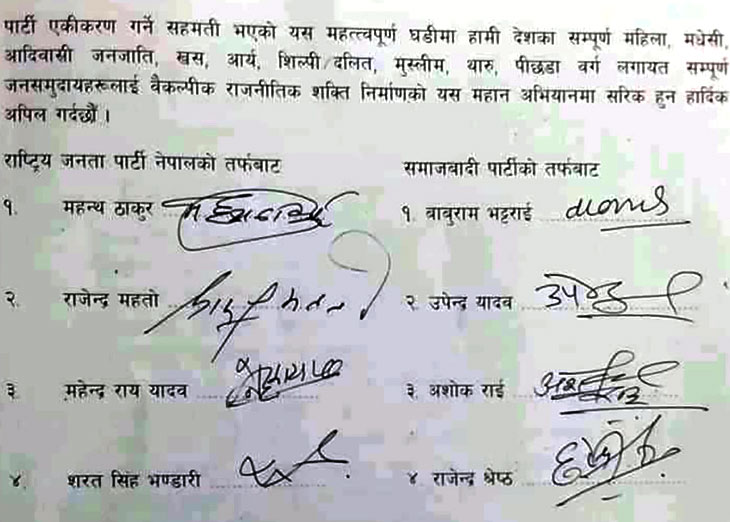 पार्टी एकीकरण गर्ने सहमती भएको यस महत्त्वपूर्ण घडीमा हामी देशका सम्पूर्ण महिला, मधेसी,
आदिवासी जनजाति, खस, आर्य, शिल्पी/दलित, मुस्लीम, थारु, पीछडा वर्ग लगायत सम्पूर्ण
जनसमुदायहरूलाई वैकल्पीक राजनीतिक शक्ति निर्माणको यस महान अभियानमा सरिक हुन हार्दिक
अपिल गर्दछौं ।
राष्ट्रिय जनता पार्टी नेपालको तर्फबाट
१. महन्थ ठाकुर
२. राजेन्द्र महतो
३. महेन्द्र राय यादव
४. शरत सिंह भण्डारी
समाजबादी पार्टीको तर्फबाट
१. बाबुराम भट्टराई
२ उपेन्द्र यादव
३. अशोक राई
४ राजेन्द्र श्रेष्ठ